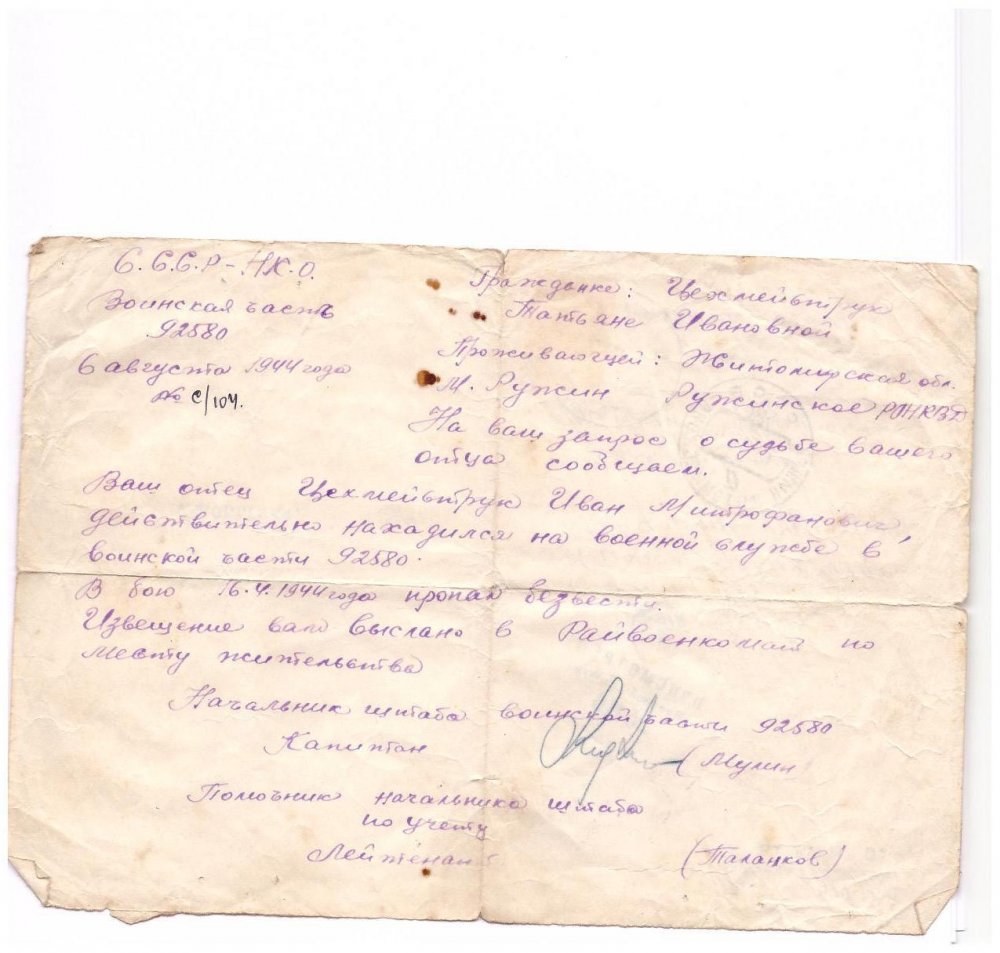 С.С.С.Р – Н.К.О.
Воинская часть
92580
6 августа 1944 года
№ с/104.
Гражданке: Цехмейструк
Татьяне Ивановной
Проживающей: Житомирская обл.
М. Ружин Ружинское РОНКВД
На ваш запрос о судьбе вашего
отца сообщаем.
Ваш отец Цехмейструк Иван Митрофанович
действительно находился на военной службе в
воинской части 92580.
В бою 16.4.1944 года пропал безвести.
Извещение вам выслано в Райвоенкомат по
месту жительства
Начальник штаба воинской части 92580
Капитан (Мулин
Помочник начальника штаба
по учету
Лейтенант (Таланков)